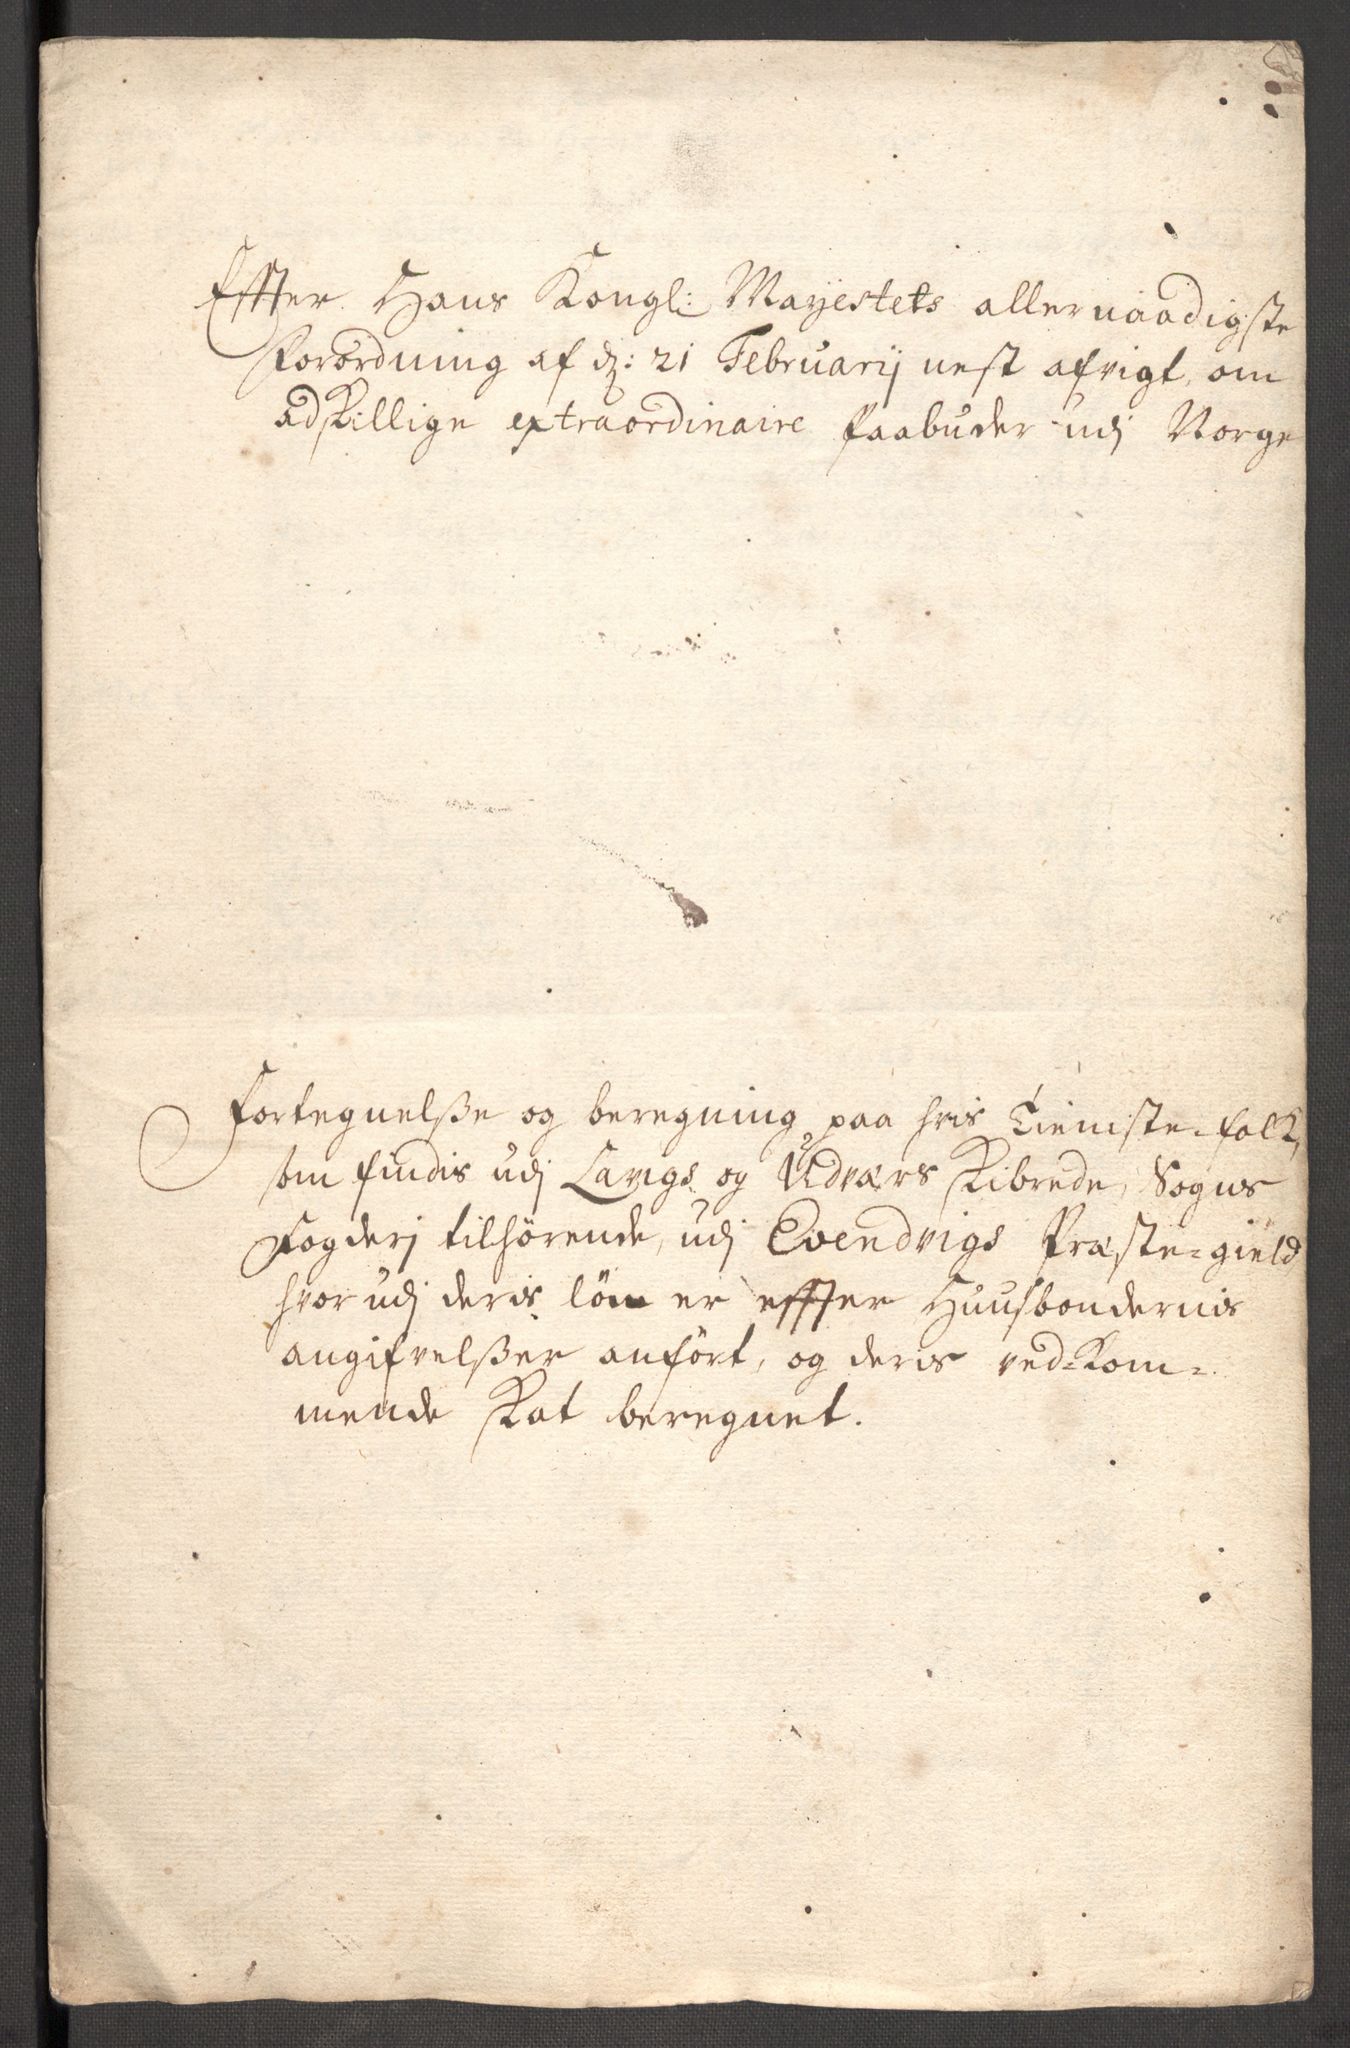 Effter Hans Kongl: Mayestets allernaadigste
forordning af d: 21 Februarij nest afvigt, om
adskillige extraordinaire Paabuder udj Norge
Fortegnelße og beregning paa hvis Tieniste-folk,
som findis udj Lavigs og Udværs Skibrede, Sogns
Fogderj tilhørende, udj Evendvigs Præste-gield
hvor udj deris løn er effter Huusbondernis
angifvelßer anført, og deris ved-kom-
mende skat beregnet.